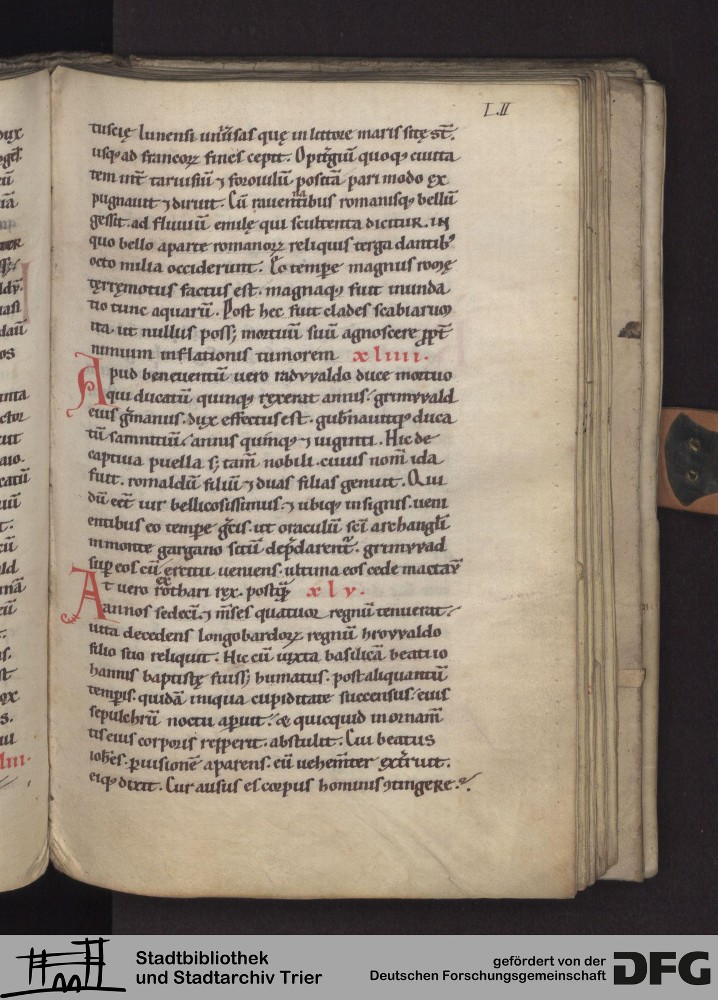 L.II
tuscię lunensi uniũsas quę in littore maris sitę st̄.
usq; ad francoꝝ fines cepit. Opit̃giũ quoq; ciuita
tem int̃ taruisiũ ⁊ foroiulũ positã pari modo ex
pugnauit ⁊ diruit. Cũ rauennatibus romanisq; bellũ
gessit. ad fluuiũ emilę qui scultenta dicitur. IN
quo bello a parte romanoꝝ reliquis terga dantibꝰ
octo milia occiderunt. Eo tempore magnus romę
tęrręmotus factus est. magnaq; fuit inunda
tio tunc aquarũ. Post hec fuit clades scabiarum
ita. ut nullus poss; mortuũ suũ agnoscere ꝓpt̃
nimium inflationis tumorem xliiii.
Apud beneuentũ uero radvvaldo duce mortuo
qui ducatũ quinq; rexerat annis. grimvvald
eius g̃manus. dux effectus est. gub̃nauitq; duca
tũ samnitiũ. annis quinq; ⁊ uiginti. Hic de
captiua puella s; tam̃ nobili. cuius nom̃ ida
fuit. romaldũ filiũ ⁊ duas filias genuit. Qui
dũ eēt uir bellicosissimus. ⁊ ubiq; insignis. ueni
entibus eo tempore g̃cis. ut oraculũ sc̄i archangl̄i
in monte gargano sitũ dep̃darent̃. grimvvad
sup̱ eos cũ exercitu ueniens. ultima eos cede mactav̄
At vero rothari rex. postq̃ xlv.
annos sedecĩ. ⁊ m̃ses quatuor regnũ tenuerat.
uita decedens longobardoꝝ regnũ hrovvaldo
filio suo reliquit. Hic cũ iuxta basilicã beati io
hannis baptistę fuiss; humatus. post aliquantũ
temporis. quidã iniqua cupiditate succensus. eius
sepulchrũ noctu ap̱uit. & quicquid in ornam̃
tis eius corporis repp̱erit. abstulit. Cui beatus
ioh̃es. p̱ uisionẽ aparens. eũ uehem̃ter ext̃ruit.
eiq; dixit. Cur ausus es corpus hominis ꝯtingere.
Stadtbibliothek
und Stadtarchiv Trier
gefördert von der
Deutschen Forschungsgemeinschaft
DFG